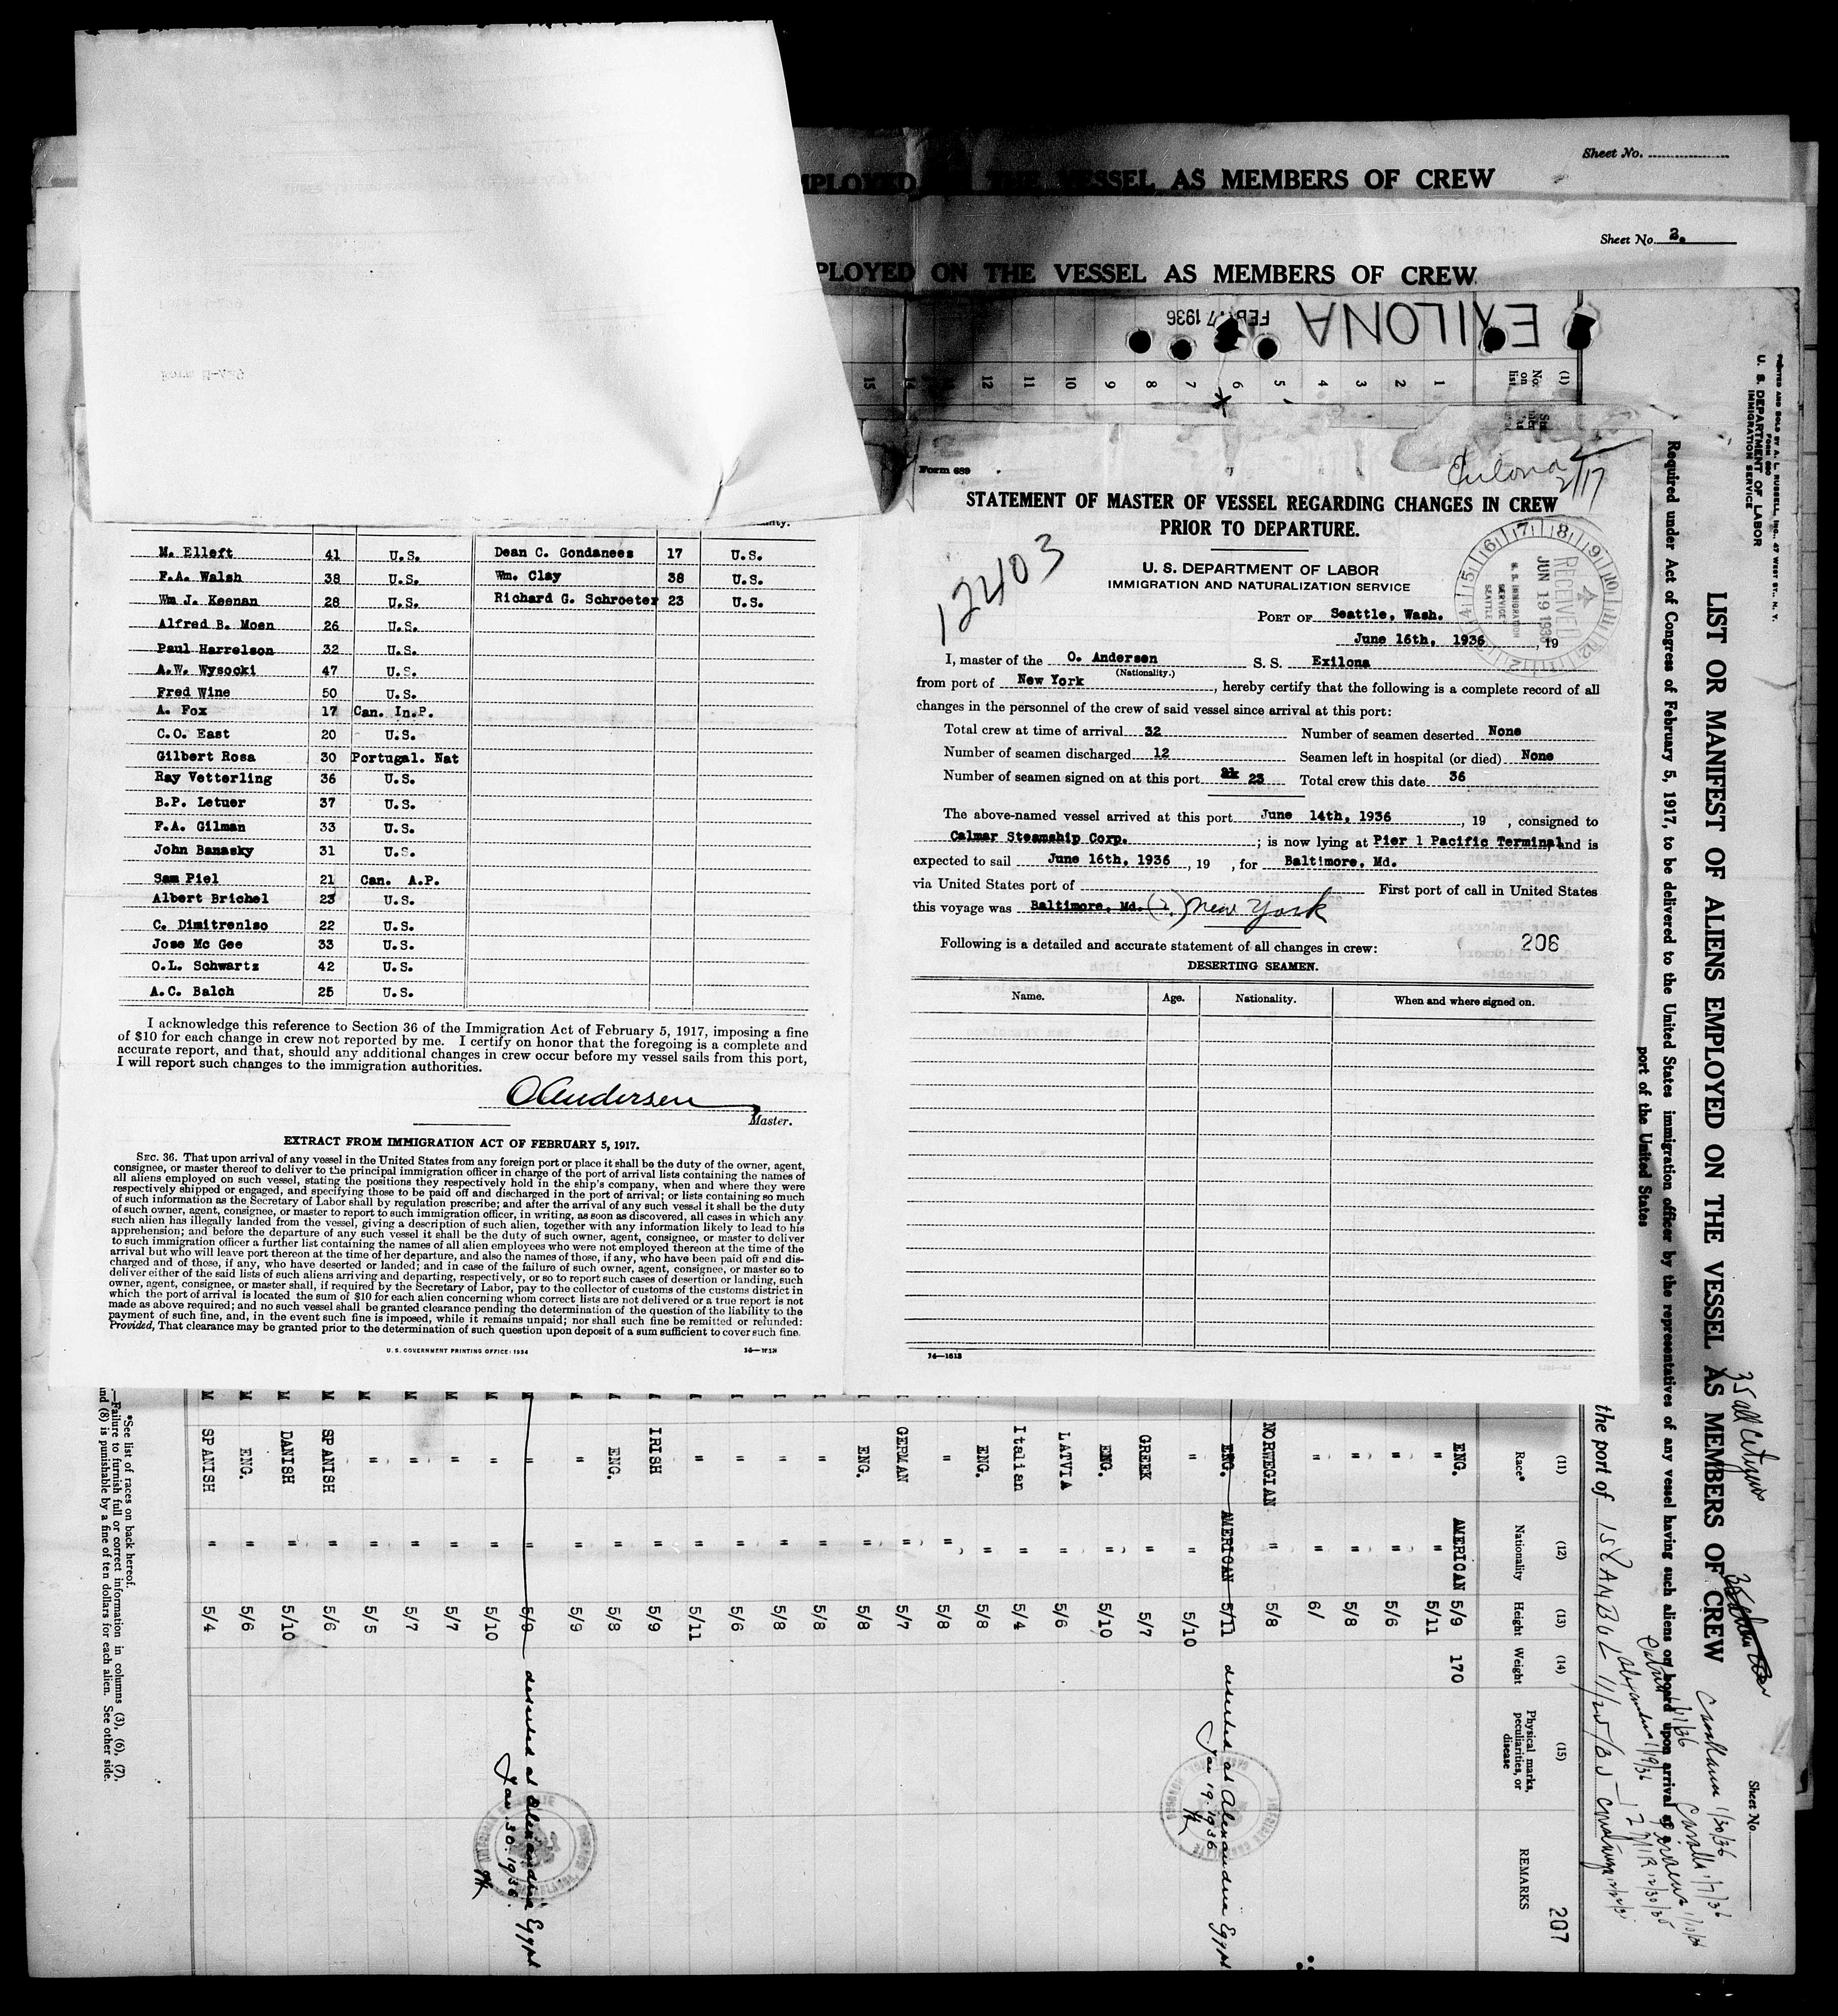 Sheet No.
MPLOYED ON THE VESSEL AS MEMBERS OF CREW
Sheet No. 2.
PLOYED ON THE VESSEL AS MEMBERS OF CREW
EXILONA
FEB 17 1936
15 14 12 11 10 9 8 7 6 5 4 3 2 1
No. on list
(1)
M. Elleft 41 U.S. Dean C. Gondanees 17 U.S.
F.A. Walsh 38 U.S. Wm. Clay 38 U.S.
Wm J. Keenan 28 U.S. Richard G. Schroeter 23 U.S.
Alfred B. Moen 26 U.S.
Paul Harrelson 32 U.S.
A.W. Wysocki 47 U.S.
Fred Wine 50 U.S.
A. Fox 17 Can. In.P.
C.O. East 20 U.S.
Gilbert Rosa 30 Portugal. Nat
Ray Vetterling 36 U.S.
B.P. Letuer 37 U.S.
F.A. Gilman 33 U.S.
John Banasky 31 U.S.
Sam Piel 21 Can. A.P.
Albert Brichel 23 U.S.
C. Dimitrenlso 22 U.S.
Jose Mc Gee 33 U.S.
O.L. Schwartz 42 U.S.
A.C. Balch 25 U.S.
I acknowledge this reference to Section 36 of the Immigration Act of February 5, 1917, imposing a fine
of $10 for each change in crew not reported by me. I certify on honor that the foregoing is a complete and
accurate report, and that, should any additional changes in crew occur before my vessel sails from this port,
I will report such changes to the immigration authorities.
O Andersen
Master.
EXTRACT FROM IMMIGRATION ACT OF FEBRUARY 5, 1917.
SEC. 36. That upon arrival of any vessel in the United States from any foreign port or place it shall be the duty of the owner, agent,
consignee, or master thereof to deliver to the principal immigration officer in charge of the port of arrival lists containing the names of
all aliens employed on such vessel, stating the positions they respectively hold in the ship's company, when and where they were
respectively shipped or engaged, and specifying those to be paid off and discharged in the port of arrival; or lists containing so much
of such information as the Secretary of Labor shall by regulation prescribe; and after the arrival of any such vessel it shall be the duty
of such owner, agent, consignee, or master to report to such immigration officer, in writing, as soon as discovered, all cases in which any
such alien has illegally landed from the vessel, giving a description of such alien, together with any information likely to lead to his
apprehension; and before the departure of any such vessel it shall be the duty of such owner, agent, consignee, or master to deliver
to such immigration officer a further list containing the names of all alien employees who were not employed thereon at the time of the
arrival but who will leave port thereon at the time of her departure, and also the names of those, if any, who have been paid off and dis-
charged and of those, if any, who have deserted or landed; and in case of the failure of such owner, agent, consignee, or master so to
deliver either of the said lists of such aliens arriving and departing, respectively, or so to report such cases of desertion or landing, such
owner, agent, consignee, or master shall, if required by the Secretary of Labor, pay to the collector of customs of the customs district in
which the port of arrival is located the sum of $10 for each alien concerning whom correct lists are not delivered or a true report is not
made as above required; and no such vessel shall be granted clearance pending the determination of the question of the liability to the
payment of such fine, and, in the event such fine is imposed, while it remains unpaid; nor shall such fine be remitted or refunded:
Provided, That clearance may be granted prior to the determination of such question upon deposit of a sum sufficient to cover such fine.
U.S. GOVERNMENT PRINTING OFFICE: 1934
Form 689
Exilona 2/17
STATEMENT OF MASTER OF VESSEL REGARDING CHANGES IN CREW
PRIOR TO DEPARTURE.
12403
U. S. DEPARTMENT OF LABOR
IMMIGRATION AND NATURALIZATION SERVICE
RECEIVED
JUN 19 1936
U.S. IMMIGRATION
SERVICE
SEATTLE
PORT OF Seattle, Wash.
June 16th, 1936, 19
I, master of the O. Andersen S. S. Exilona
(Nationality.)
from port of New York, hereby certify that the following is a complete record of all
changes in the personnel of the crew of said vessel since arrival at this port:
Total crew at time of arrival 32 Number of seamen deserted None
Number of seamen discharged 12 Seamen left in hospital (or died) None
Number of seamen signed on at this port 23 Total crew this date 36
The above-named vessel arrived at this port June 14th, 1936, 19 , consigned to
Calmar Steamship Corp. ; is now lying at Pier 1 Pacific Terminal, and is
expected to sail June 16th, 1936, 19 , for Baltimore, Md.
via United States port of First port of call in United States
this voyage was Baltimore, Md. (?) New York
Following is a detailed and accurate statement of all changes in crew: 206
DESERTING SEAMEN.
Name. Age. Nationality. When and where signed on.
14—1613
PRINTED AND SOLD BY A. L. RUSSELL, INC., 47 WEST ST., N. Y.
Form 680
U. S. DEPARTMENT OF LABOR
IMMIGRATION SERVICE
Sheet No.
LIST OR MANIFEST OF ALIENS EMPLOYED ON THE VESSEL AS MEMBERS OF CREW
35 all Citizens
Required under Act of Congress of February 5, 1917, to be delivered to the United States immigration officer by the representatives of any vessel having such aliens on board upon arrival at a
port of the United States
the port of ISTANBUL
207
(11) (12) (13) (14) (15)
Race* Nationality Height Weight Physical marks, peculiarities, or disease REMARKS
ENG. AMERICAN 5/9 170
" " 5/11
" " 5/6
" " 5/8
" " 6/
NORWEGIAN " 5/8
ENG. AMERICAN 5/11 deserted at Alexandria Egypt Jan 19. 1936
" " 5/10
GREEK " 5/7
ENG. " 5/10
LATVIA " 5/6
Italian " 5/4
ENG. " 5/8
" " 5/8
GERMAN " 5/7
ENG. " 5/8
" " 5/8
" " 5/8
" " 5/6
" " 5/11
IRISH " 5/9
ENG. " 5/8
" " 5/9
" " 5/9 deserted at Alexandria Egypt Jan. 30. 1936.
" " 5/10
" " 5/7
" " 5/7
" " 5/5
SPANISH " 5/6
DANISH " 5/10
ENG. " 5/6
SPANISH " 5/4
*See list of races on back hereof.
—Failure to furnish full or correct information in columns (3), (6), (7),
nd (8) is punishable by a fine of ten dollars for each alien. See other side.